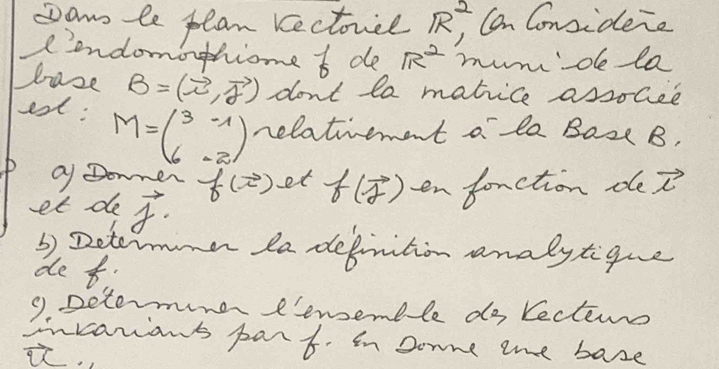 Dans le plan vectoriel ℝ², on considère
l'endomorphisme f de ℝ² muni de la
base B = (i⃗, j⃗) dont la matrice associée
est : M = (3 -1 ; 6 -2) relativement à la Base B.
a) Donner f(i⃗) et f(j⃗) en fonction de i⃗
et de j⃗.
b) Déterminer la définition analytique
de f.
c) Déterminer l'ensemble des vecteurs
invariants par f. En Donne une base
u⃗.,